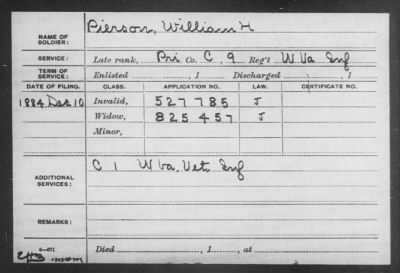 NAME OF SOLDIER: Pierson, William H
SERVICE: Late rank, Pri Co. C, 9 Reg't W Va Inf
TERM OF SERVICE: Enlisted , 1 Discharged , 1
DATE OF FILING. CLASS. APPLICATION NO. LAW. CERTIFICATE NO.
1884 Dec 10 Invalid, 527785 J
Widow, 825457 J
Minor,
ADDITIONAL SERVICES: C 1 W Va. Vet. Inf
REMARKS:
Died , 1 , at